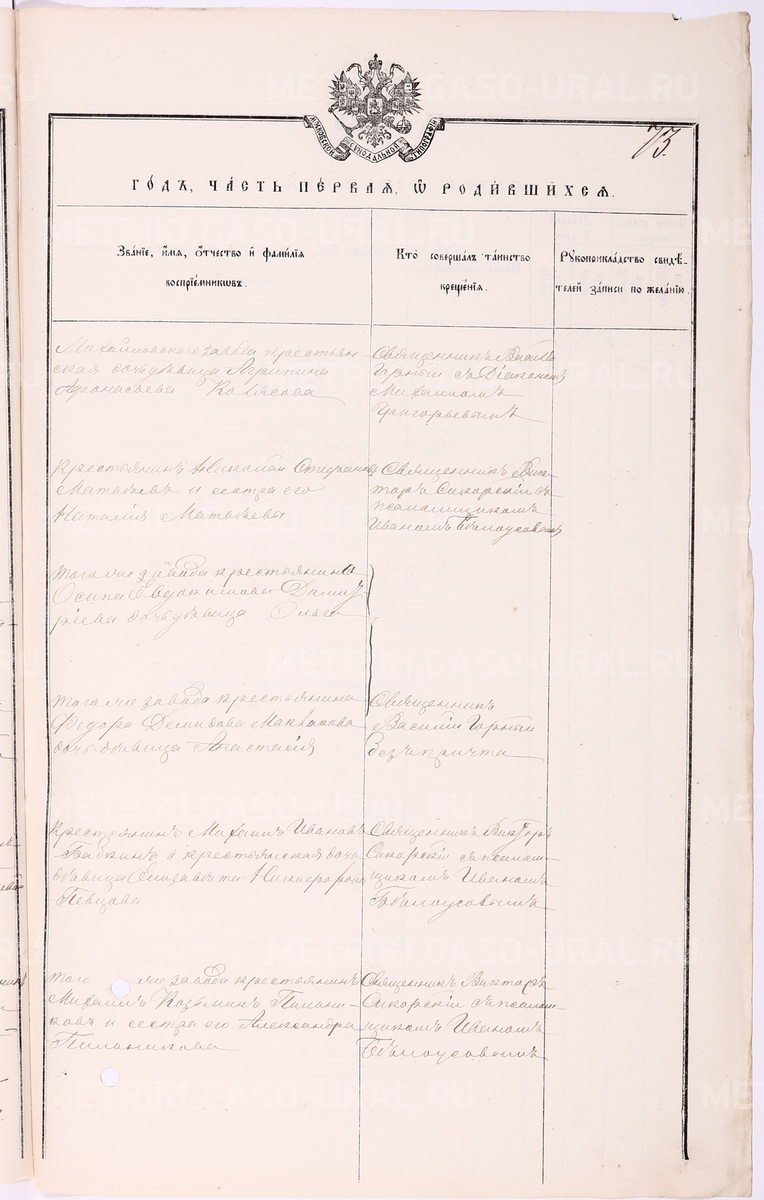 73.
МОСКОВСКОЙ СѴНОДАЛЬНОЙ ТИПОГРАФІИ
ГО́ДЪ, ЧА́СТЬ ПЕ́РВАЯ, Ѽ РОДИ́ВШИХСЯ.
Зва́нїе, и҆́мя, ѻ҆́тчество и҆ фами́лїя
воспрїе́мникѡвъ.
Кто̀ соверша́лъ та́инство
креще́нїя.
Рꙋкоприкла́дство свидѣ́-
телей за́писи по жела́нїю.
Михайловскаго завода крестьян-
ская дочь девица Агрипина
Афонасьева
Священникъ Василій
Горный съ Діакономъ
Михаиломъ
Григорьевымъ
Крестьянинъ Николай Стефановъ
Матвѣевъ и сестра его
Наталія Матвѣевы
Священникъ Вик-
торъ Сикорскій съ
псаломщикомъ
Иваномъ Бѣлоусовымъ
того же завода крестьянина
Осипа Евдокимова Дмит-
ріева дочь девица Ольга
того же завода крестьянина
Федора Демидова
дочь девица Анастасія
Священникъ
Василій Горный
безъ причта
Крестьянинъ Михаилъ Ивановъ
Бабкинъ и крестьянская дочь
девица Елизавета Никифорова
Певцова
Священникъ Викторъ
Сикорскій съ псалом-
щикомъ Иваномъ
Бѣлоусовымъ
того же завода крестьянинъ
Михаилъ Козьминъ Пильни-
ковъ и сестра его Александра
Пильникова
Священникъ Викторъ
Сикорскій съ псалом-
щикомъ Иваномъ
Бѣлоусовымъ
METRIKI.GASO-URAL.RU